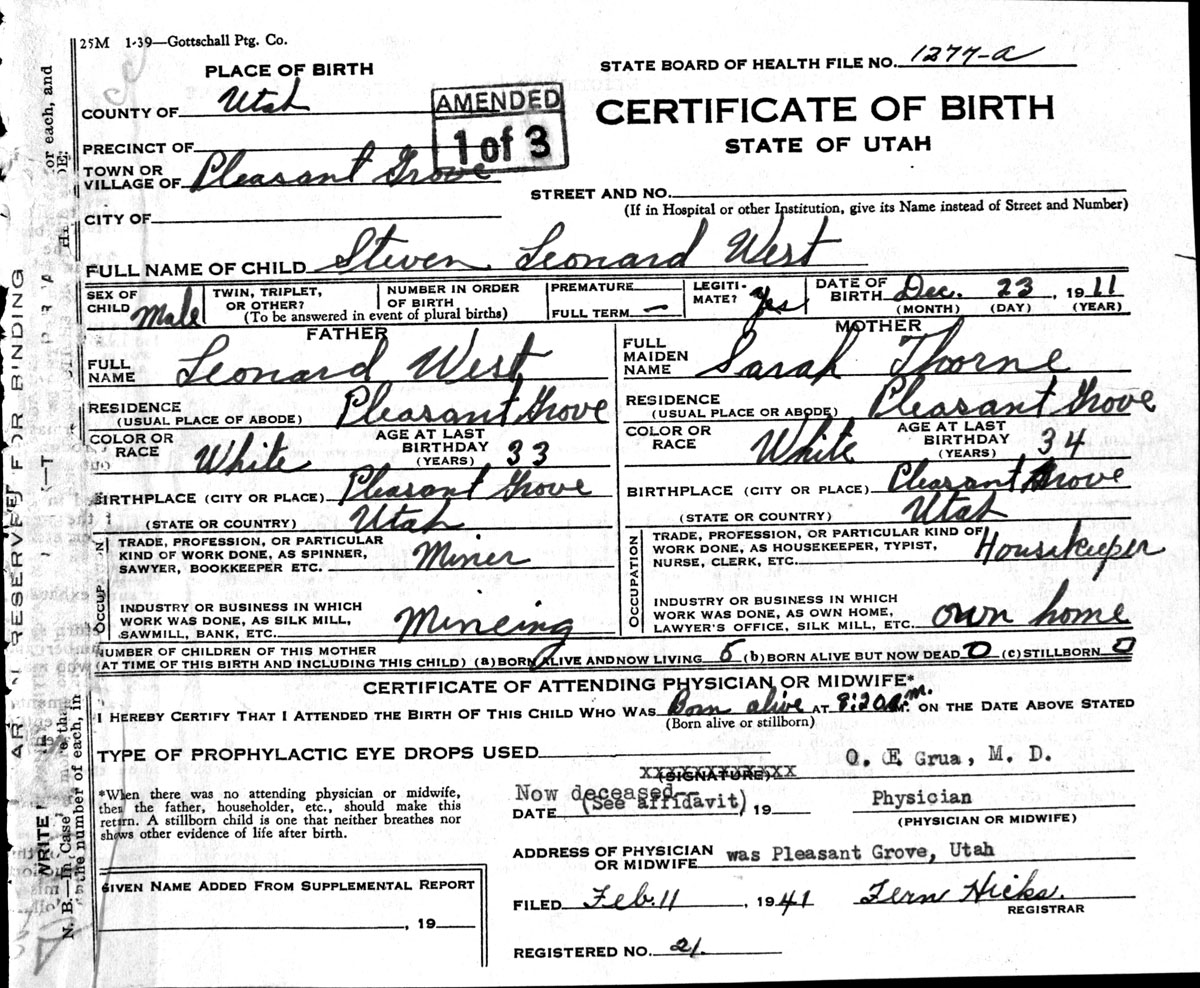 25M 1-39—Gottschall Ptg. Co.
PLACE OF BIRTH
STATE BOARD OF HEALTH FILE NO. 1277-a
COUNTY OF Utah
AMENDED
1 of 3
CERTIFICATE OF BIRTH
STATE OF UTAH
PRECINCT OF
TOWN OR VILLAGE OF Pleasant Grove
STREET AND NO.
(If in Hospital or other Institution, give its Name instead of Street and Number)
CITY OF
FULL NAME OF CHILD Steven Leonard West
SEX OF CHILD Male
TWIN, TRIPLET, OR OTHER?
NUMBER IN ORDER OF BIRTH
(To be answered in event of plural births)
PREMATURE
FULL TERM —
LEGITI-MATE? Yes
DATE OF BIRTH Dec. 23, 1911
(MONTH) (DAY) (YEAR)
FATHER
FULL NAME Leonard West
RESIDENCE (USUAL PLACE OF ABODE) Pleasant Grove
COLOR OR RACE White AGE AT LAST BIRTHDAY (YEARS) 33
BIRTHPLACE (CITY OR PLACE) Pleasant Grove
(STATE OR COUNTRY) Utah
TRADE, PROFESSION, OR PARTICULAR
KIND OF WORK DONE, AS SPINNER,
SAWYER, BOOKKEEPER ETC. Miner
INDUSTRY OR BUSINESS IN WHICH
WORK WAS DONE, AS SILK MILL,
SAWMILL, BANK, ETC. Mineing
MOTHER
FULL MAIDEN NAME Sarah Thorne
RESIDENCE (USUAL PLACE OR ABODE) Pleasant Grove
COLOR OR RACE White AGE AT LAST BIRTHDAY (YEARS) 34
BIRTHPLACE (CITY OR PLACE) Pleasant Grove
(STATE OR COUNTRY) Utah
OCCUPATION
TRADE, PROFESSION, OR PARTICULAR KIND OF
WORK DONE, AS HOUSEKEEPER, TYPIST,
NURSE, CLERK, ETC. Housekeeper
INDUSTRY OR BUSINESS IN WHICH
WORK WAS DONE, AS OWN HOME,
LAWYER'S OFFICE, SILK MILL, ETC. own home
NUMBER OF CHILDREN OF THIS MOTHER
(AT TIME OF THIS BIRTH AND INCLUDING THIS CHILD) (a) BORN ALIVE AND NOW LIVING 5 (b) BORN ALIVE BUT NOW DEAD 0 (c) STILLBORN 0
CERTIFICATE OF ATTENDING PHYSICIAN OR MIDWIFE*
I HEREBY CERTIFY THAT I ATTENDED THE BIRTH OF THIS CHILD WHO WAS Born alive AT 8:20 M. ON THE DATE ABOVE STATED
(Born alive or stillborn)
TYPE OF PROPHYLACTIC EYE DROPS USED
O. E Grua, M. D.
XXXXXXXXXXXX
(SIGNATURE)
*When there was no attending physician or midwife,
then the father, householder, etc., should make this
return. A stillborn child is one that neither breathes nor
shows other evidence of life after birth.
Now deceased--
DATE (See affidavit) 19
Physician
(PHYSICIAN OR MIDWIFE)
ADDRESS OF PHYSICIAN OR MIDWIFE was Pleasant Grove, Utah
GIVEN NAME ADDED FROM SUPPLEMENTAL REPORT
, 19
FILED Feb. 11, 1941 Fern Hicks.
REGISTRAR
REGISTERED NO. 21.